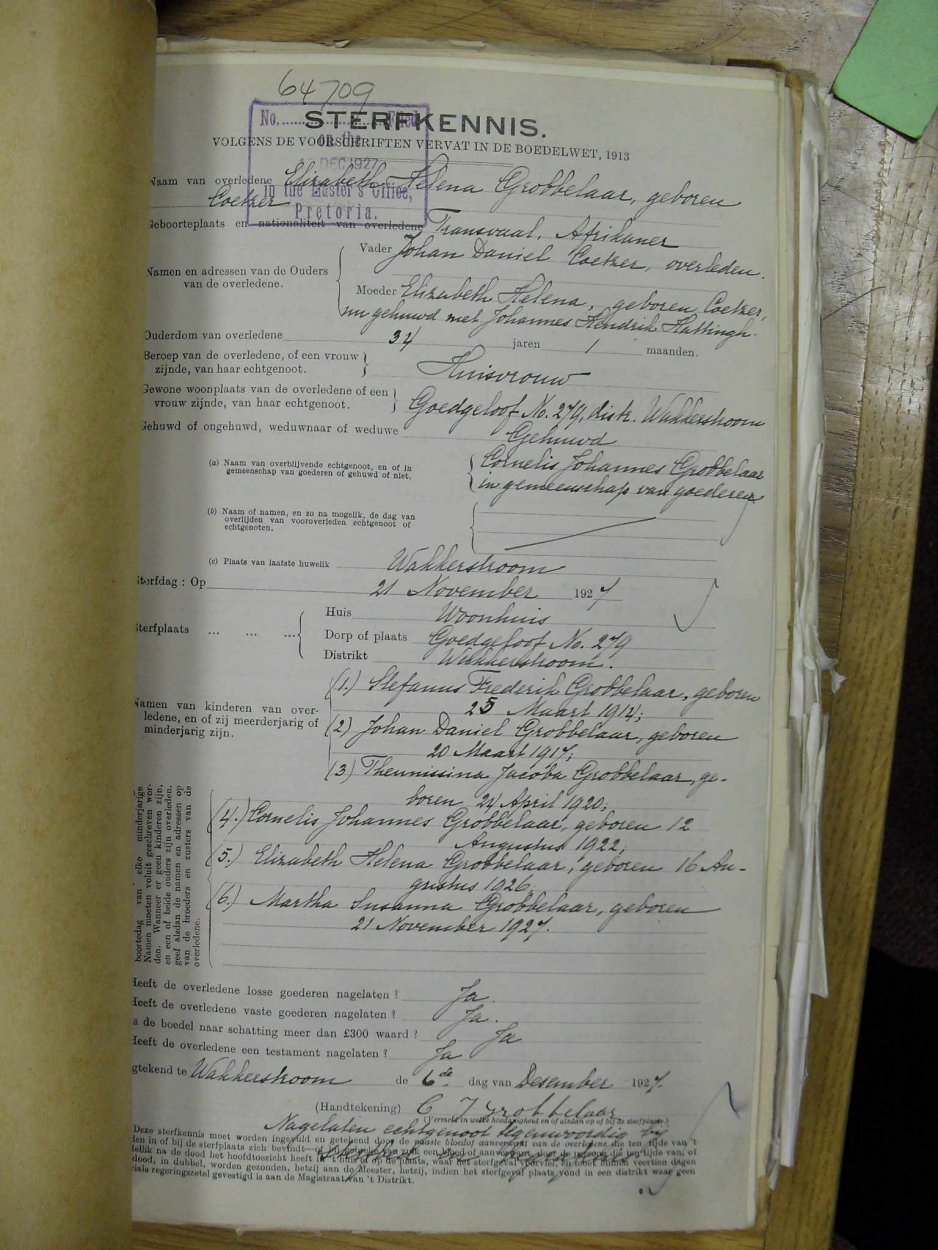 64709
No. Filed
on the
DEC 1927
in the Master's Office,
Pretoria.
STERFKENNIS.
VOLGENS DE VOORSCHRIFTEN VERVAT IN DE BOEDELWET, 1913
Naam van overledene Elizabeth Helena Grobbelaar, geboren
Coetzer
Geboorteplaats en nationaliteit van overledene Transvaal. Afrikaner
Namen en adressen van de Ouders van de overledene.
Vader Johan Daniel Coetzer, overleden.
Moeder Elizabeth Helena, geboren Coetzer,
nu gehuwd met Johannes Hendrik Hattingh.
Ouderdom van overledene 34 jaren 1 maanden.
Beroep van de overledene, of een vrouw
zijnde, van haar echtgenoot. Huisvrouw
Gewone woonplaats van de overledene of een
vrouw zijnde, van haar echtgenoot. Goedgeloof No. 279, distr. Wakkerstroom
Gehuwd of ongehuwd, weduwnaar of weduwe Gehuwd
(a) Naam van overblijvende echtgenoot, en of in
gemeenschap van goederen of gehuwd of niet.
Cornelis Johannes Grobbelaar
in gemeenschap van goederen
(b) Naam of namen, en zo na mogelik, de dag van
overlijden van vooroverleden echtgenoot of
echtgenoten.
(c) Plaats van laatste huwelik Wakkerstroom
Sterfdag : Op 21 November 1927
Sterfplaats ... ... ...
Huis Woonhuis
Dorp of plaats Goedgeloof No. 279
Distrikt Wakkerstroom.
Namen van kinderen van over-
ledene, en of zij meerderjarig of
minderjarig zijn.
(1.) Stefanus Frederik Grobbelaar, geboren
25 Maart 1914;
(2) Johan Daniel Grobbelaar, geboren
20 Maart 1917;
(3) Theunissina Jacoba Grobbelaar, ge-
boren 24 April 1920;
(4.) Cornelis Johannes Grobbelaar, geboren 12
Augustus 1922;
(5.) Elizabeth Helena Grobbelaar, geboren 16 Au-
gustus 1926;
(6.) Martha Susanna Grobbelaar, geboren
21 November 1927.
boortedag van elke minderjarige
Namen moeten voluit geschreven wor-
den. Wanneer er geen kinderen zijn,
en een of beide ouders zijn overleden,
geef alsdan de namen en adressen op
van de broeders en zusters van de
overledene.
Heeft de overledene losse goederen nagelaten ? Ja.
Heeft de overledene vaste goederen nagelaten ? Ja.
Is de boedel naar schatting meer dan £300 waard ? Ja
Heeft de overledene een testament nagelaten ? Ja
gtekend te Wakkerstroom de 6de dag van Desember 1927.
(Handtekening) C J Grobbelaar
(Vermeld in welke hoedanigheid en of aldan op of bij de sterfplaats)
Nagelaten echtgenoot tegenwoordig bij
Deze sterfkennis moet worden ingevuld en getekend door de naaste bloedof aanverwant van de overledene die ten tijde van 't
dood, in dubbel, worden gezonden, hetzij aan de Meester, hetzij, indien het sterfgeval plaats vond in een distrikt waar geen
vinciale regeringszetel gevestigd is aan de Magistraat van 't Distrikt.